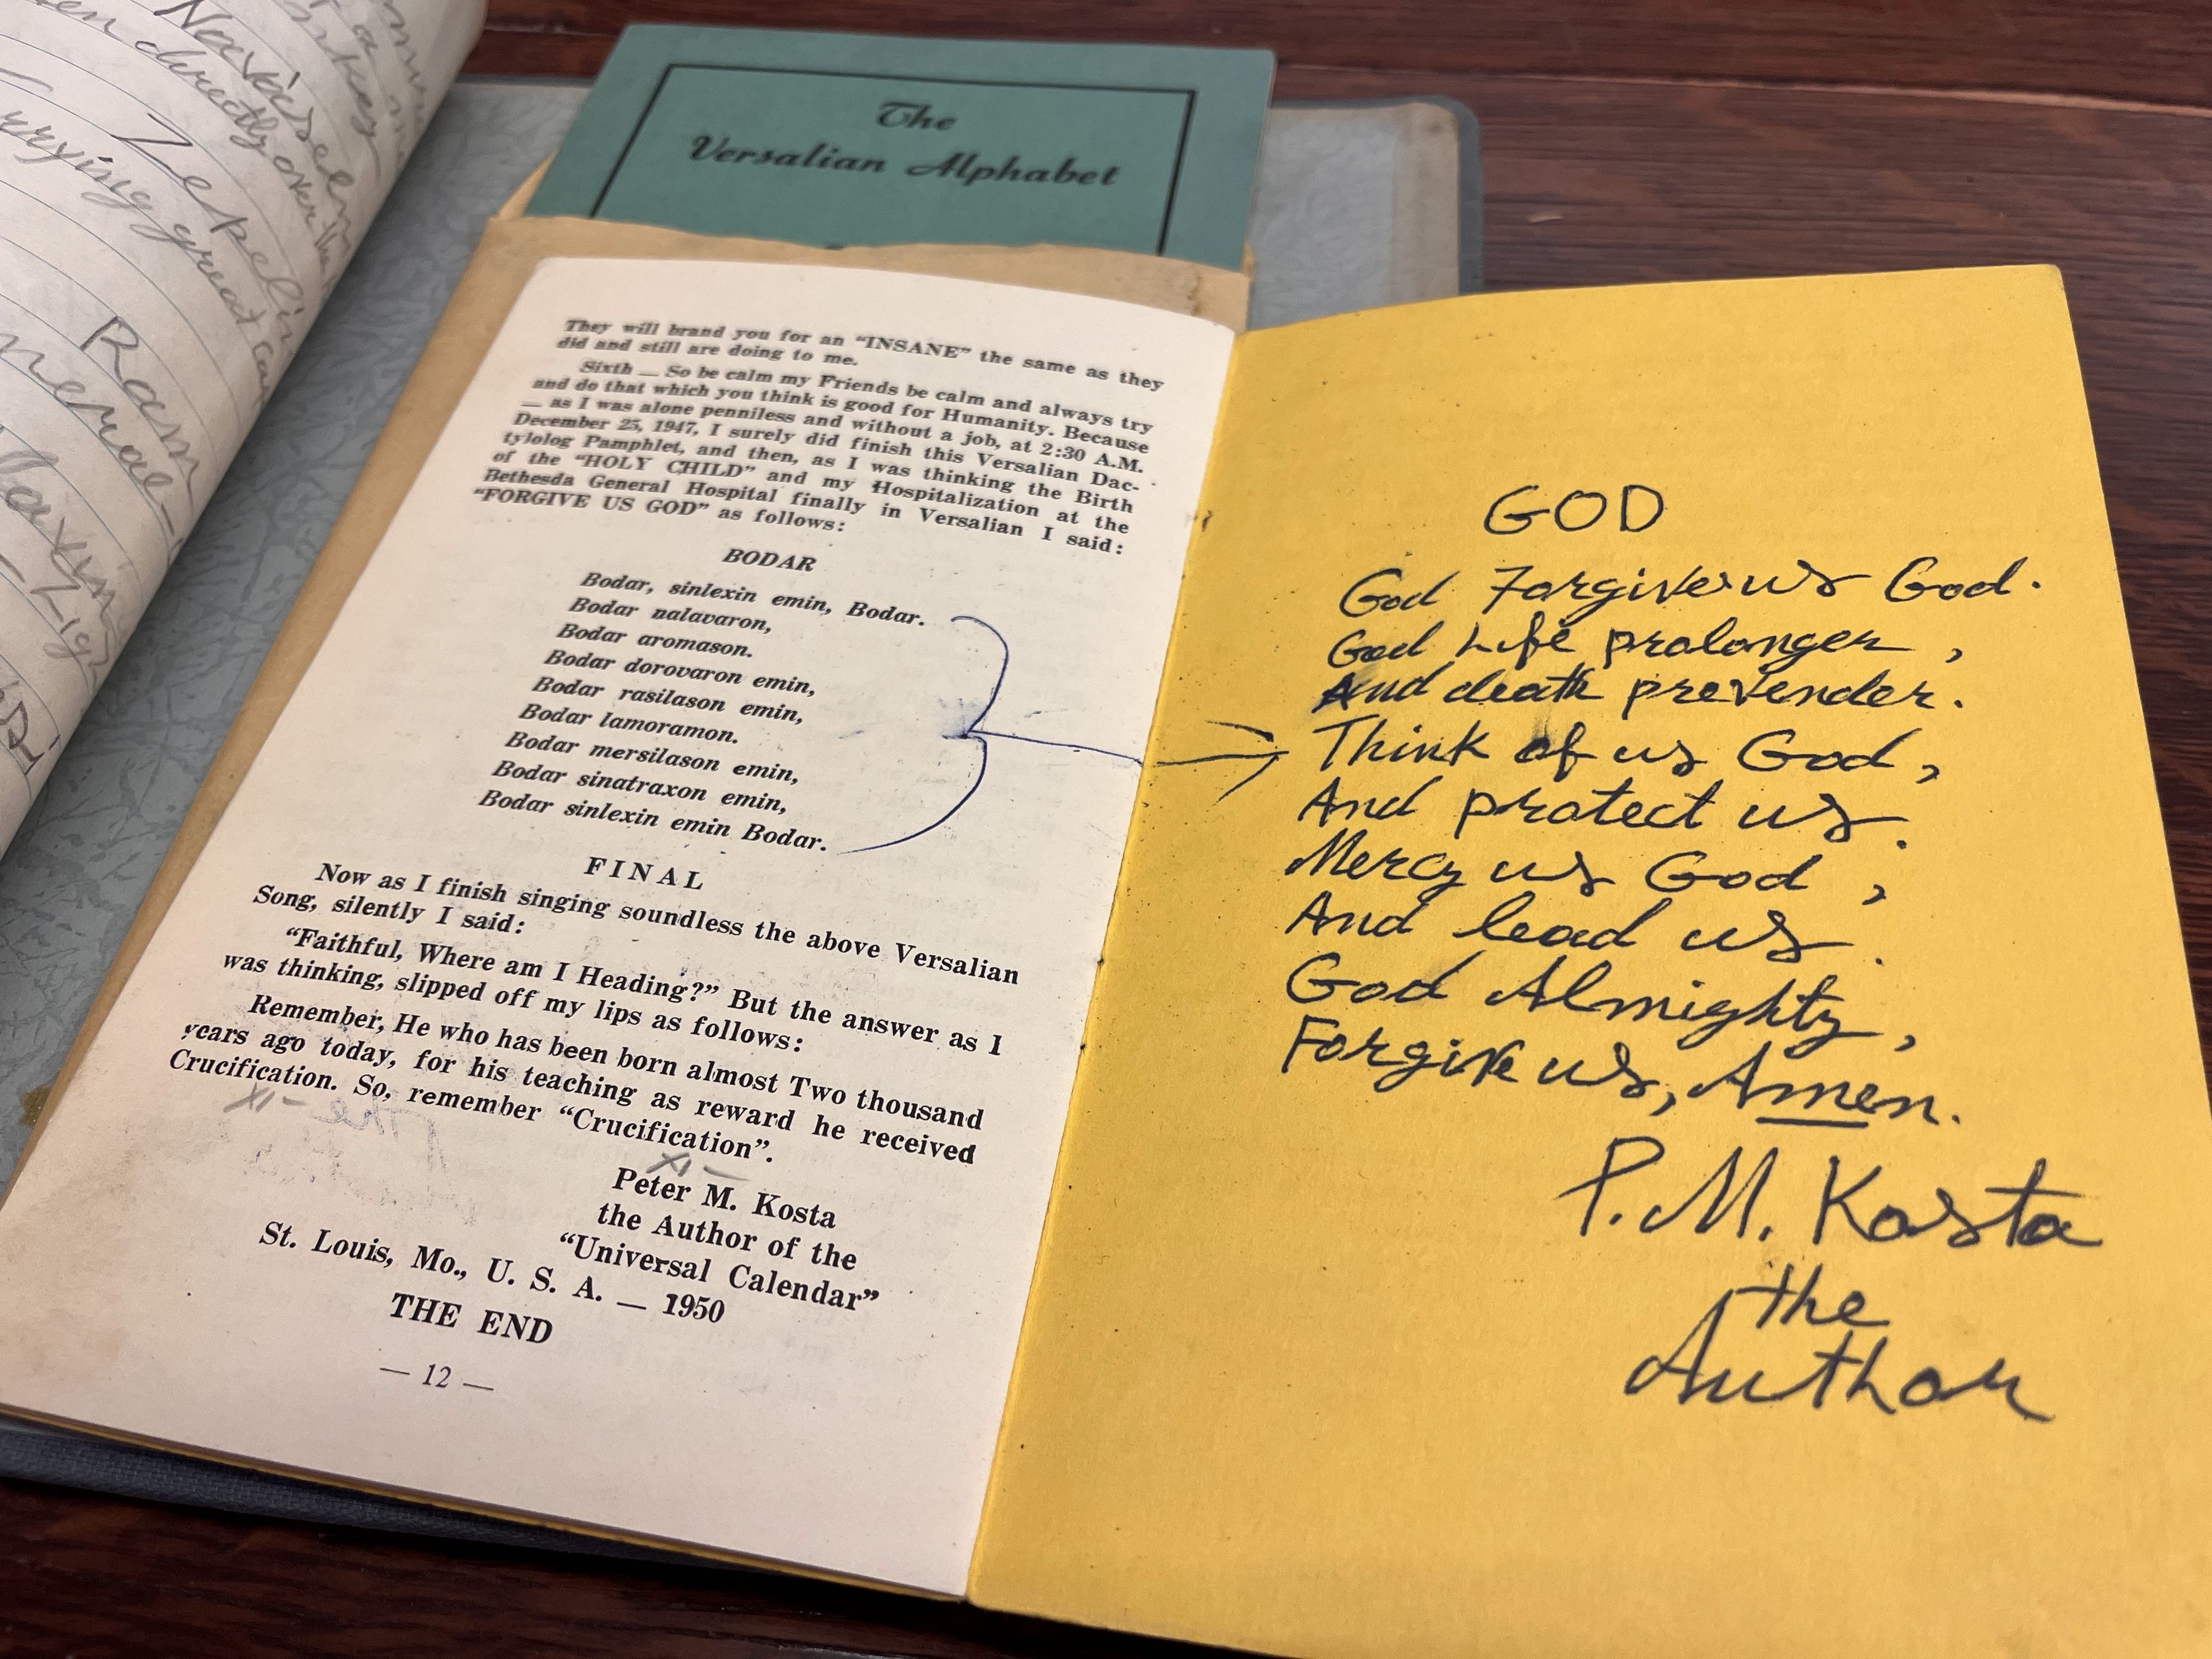 The
Versalian Alphabet
They will brand you for an “INSANE” the same as they
did and still are doing to me.
Sixth — So be calm my Friends be calm and always try
and do that which you think is good for Humanity. Because
— as I was alone penniless and without a job, at 2:30 A.M.
December 25, 1947, I surely did finish this Versalian Dac-
tylolog Pamphlet, and then, as I was thinking the Birth
of the “HOLY CHILD” and my Hospitalization at the
Bethesda General Hospital finally in Versalian I said:
“FORGIVE US GOD” as follows:
BODAR
Bodar, sinlexin emin, Bodar.
Bodar nalavaron,
Bodar aromason.
Bodar dorovaron emin,
Bodar rasilason emin,
Bodar lamoramon.
Bodar mersilason emin,
Bodar sinatraxon emin,
Bodar sinlexin emin Bodar.
FINAL
Now as I finish singing soundless the above Versalian
Song, silently I said:
“Faithful, Where am I Heading?” But the answer as I
was thinking, slipped off my lips as follows:
Remember, He who has been born almost Two thousand
years ago today, for his teaching as reward he received
Crucification. So, remember “Crucification”.
Peter M. Kosta
the Author of the
“Universal Calendar”
St. Louis, Mo., U. S. A. — 1950
THE END
— 12 —
GOD
God Forgive us God.
God Life prolonger,
And death prevender.
Think of us God,
And protect us.
Mercy us God,
And lead us.
God Almighty,
Forgive us, Amen.
P. M. Kosta
the
Author
directly over the
Zepelin
carrying great